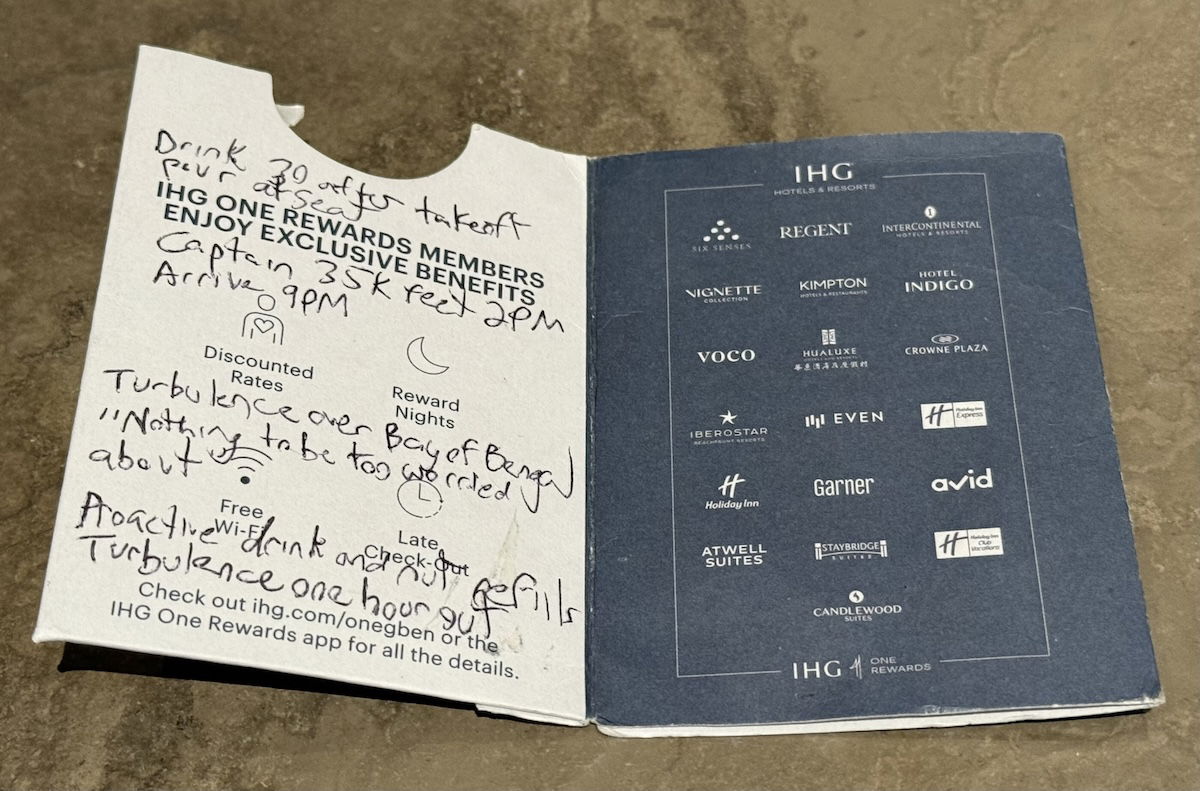 Drink 30 after takeoff
pour at seat
IHG ONE REWARDS MEMBERS
ENJOY EXCLUSIVE BENEFITS
Captain 35K feet 2PM
Arrive 9PM
Discounted
Rates
Reward
Nights
Turbulence over Bay of Bengal
"Nothing to be too worried
about"
Free
Wi-Fi
Late
Check-Out
Proactive drink and nut refills
Turbulence one hour out
Check out ihg.com/onegben or the
IHG One Rewards app for all the details.
IHG
HOTELS & RESORTS
SIX SENSES
REGENT
INTERCONTINENTAL
HOTELS & RESORTS
VIGNETTE
COLLECTION
KIMPTON
HOTELS & RESTAURANTS
HOTEL
INDIGO
VOCO
HUALUXE
HOTELS AND RESORTS
CROWNE PLAZA
IBEROSTAR
BEACHFRONT RESORTS
EVEN
H Holiday Inn
Express
H
Holiday Inn
Garner
avid
ATWELL
SUITES
STAYBRIDGE
SUITES
H Holiday Inn
Club
Vacations
CANDLEWOOD
SUITES
IHG ONE
REWARDS